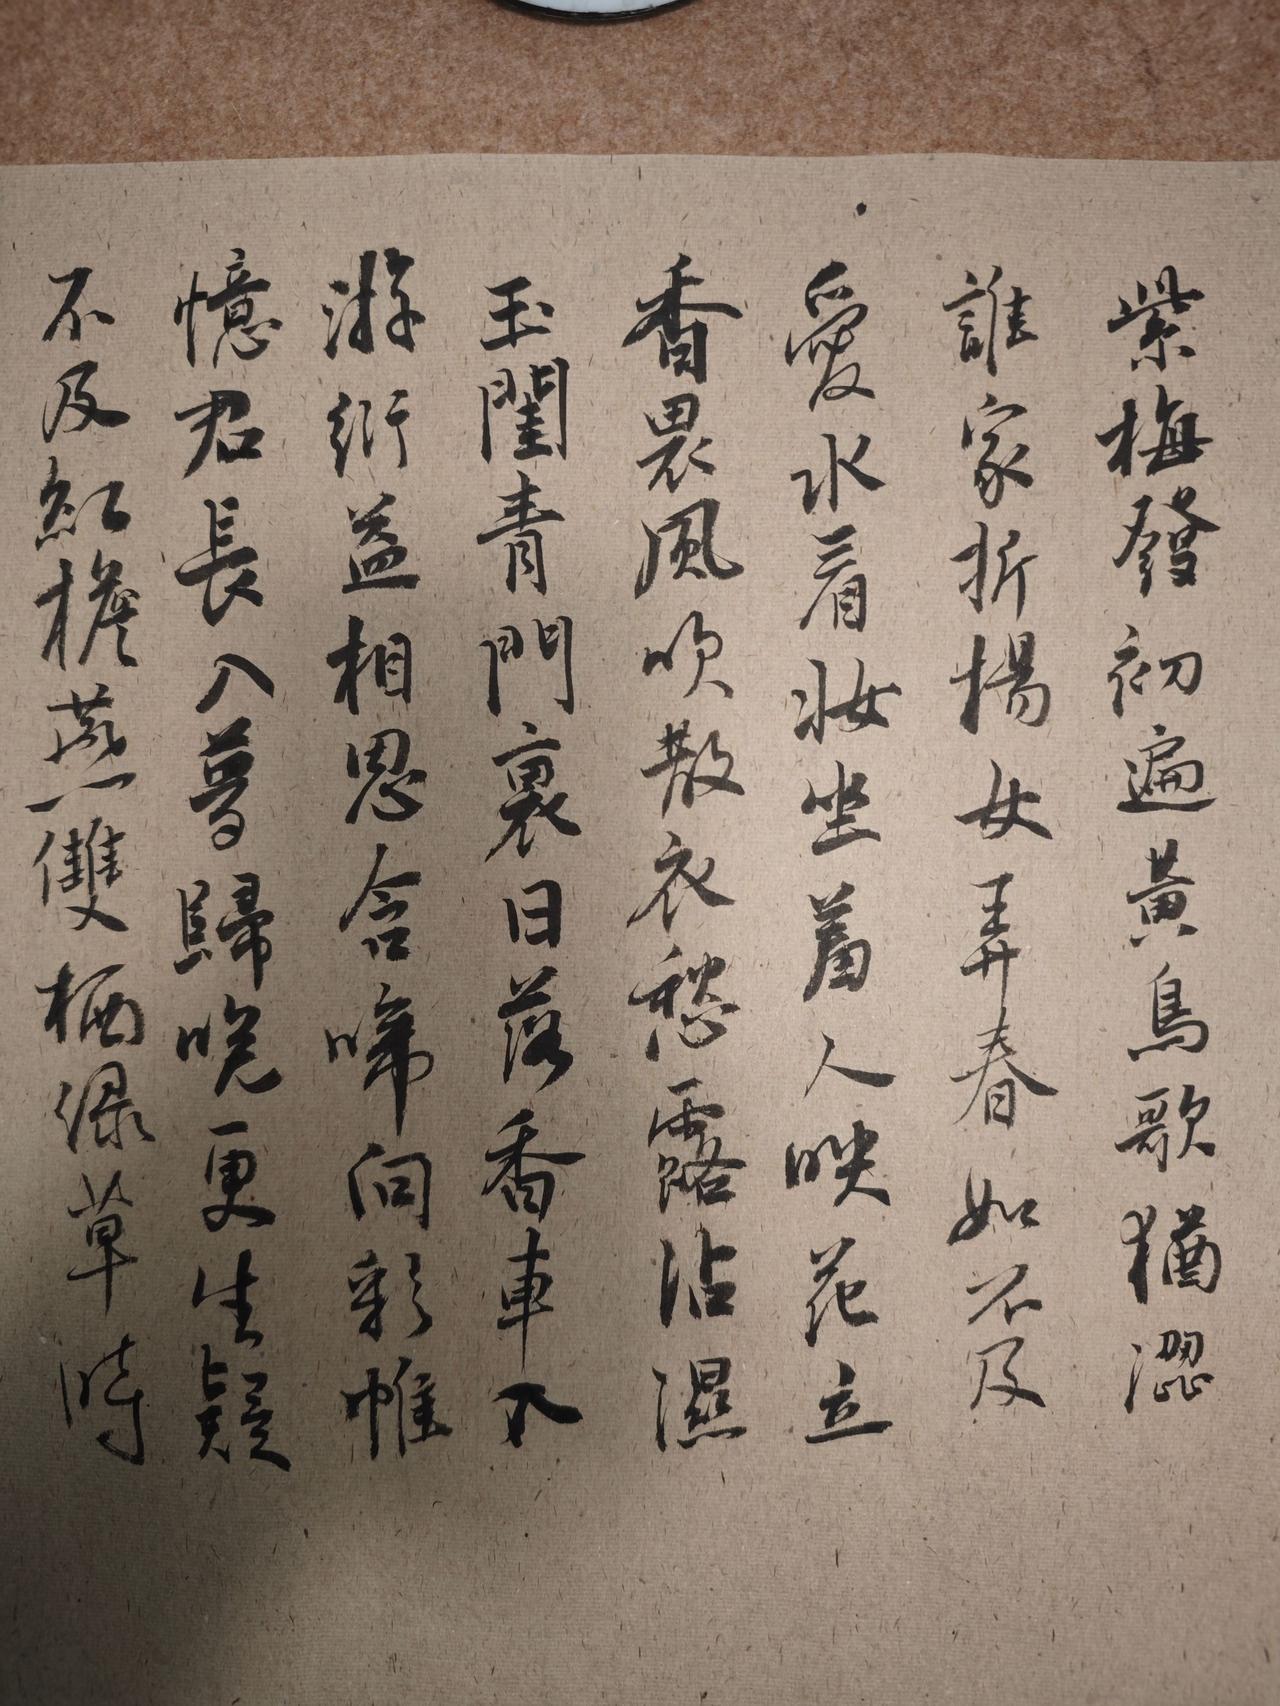 紫梅發初遍黃鳥歌猶澀
誰家折楊女弄春如不及
愛水看妝坐羞人映花立
香畏風吹散衣愁露沾濕
玉閨青門裏日落香車入
游衍益相思含啼向彩帷
憶君長入夢歸晚更生疑
不及紅檐燕雙栖綠草時